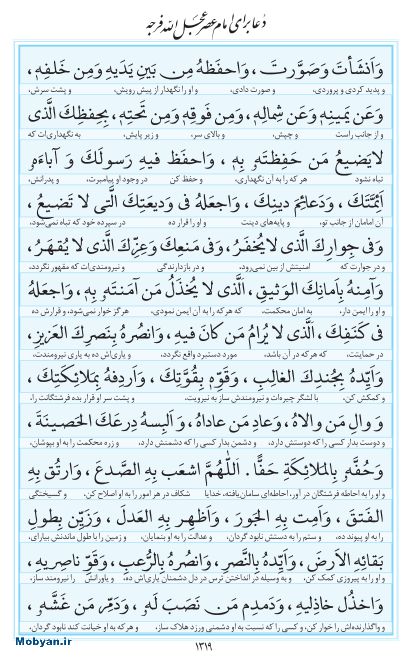 دعا برای امام عصر عجل الله فرجه
وَاَنشَأتَ وَصَوَّرتَ ، وَاحفَظهُ مِن بَینِ یَدَیهِ وَمِن خَلفِهِ ،
و پدید کردی و پروردی، و صورت دادی، و او را نگهدار از پیش رویش، و پشت سرش،
وَعَن یَمینِهِ وَعَن شِمالِهِ ، وَمِن فَوقِهِ وَمِن تَحتِهِ ، بِحِفظِكَ الَّذی
و از جانب راست و چپش، و بالای سر، و زیر پایش، به نگهداری‌ات که
لایَضیعُ مَن حَفِظتَهُ بِهِ ، وَاحفَظ فیهِ رَسولَكَ وَ آباءَهُ
تباه نشود هر که را به آن نگهداری، و حفظ کن در وجود او پیامبرت، و پدرانش،
اَئِمَّتَكَ ، وَدَعائِمَ دینِكَ ، وَاجعَلهُ فی وَدیعَتِكَ الَّتی لا تَضیعُ ،
آن امامان از جانب تو، و پایه‌های دینت و او را قرار ده در سپرده خود که تباه نمی‌شود،
وَفی جِوارِكَ الَّذی لایُخفَرُ ، وَفی مَنعِكَ وَعِزِّكَ الَّذی لا یُقهَرُ ،
و در جوارت که امنیتش از بین نمی‌رود، و در بازدارندگی و نیرومندی‌ات که مقهور نگردد،
وَآمِنهُ بِاَمانِكَ الوَثیقِ ، الَّذی لا یُخذَلُ مَن آمَنتَهُ بِهِ ، وَاجعَلهُ
و او را ایمن دار، به امان محکمت، که هرکه را به آن ایمن نمودی، هرگز خوار نمی‌شود، و قرارش ده
فی كَنَفِكَ ، الَّذی لا یُرامُ مَن كانَ فیهِ ، وَانصُرهُ بِنَصرِكَ العَزیزِ ،
در حمایتت، که هرکه در آن باشد، مورد دستبرد واقع نگردد، و یاری‌اش ده به یاری نیرومندت،
وَاَیِّدهُ بِجُندِكَ الغالِبِ ، وَقَوِّهِ بِقُوَّتِكَ ، وَاَردِفهُ بِمَلائِكَتِكَ ،
و کمکش کن، با لشگر چیره‌ات و نیرومندش ساز به نیرویت، و پشت سر او قرار بده فرشتگانت را،
وَوالِ مَن والاهُ ، وَعادِ مَن عاداهُ ، وَاَلبِسهُ دِرعَكَ الحَصینَةَ ،
و دوست بدار کسی را که دوستش دارد، و دشمن بدار کسی را که دشمنش دارد، و زره محکمت را به او بپوشان،
وَحُفَّهُ بِالمَلائِكَةِ حَفًّا . اَللّٰهُمَّ اشعَب بِهِ الصَّدعَ ، وَارتُق بِهِ
و او را به احاطه فرشتگان در آور، احاطه‌ای سامان‌یافته، خدایا شکاف در هر امور را به او اصلاح کن، و گسیختگی
الفَتقَ ، وَاَمِت بِهِ الجَورَ ، وَاَظهِر بِهِ العَدلَ ، وَزَیِّن بِطولِ
را به او پیوند ده، و ستم را به دستش نابود گردان، و عدالت را به او بنمایان، و زمین را با طول ماندنش بیارای،
بَقائِهِ الاَرضَ ، وَاَیِّدهُ بِالنَّصرِ ، وَانصُرهُ بِالرُّعبِ ، وَقَوِّ ناصِریهِ ،
و او را به پیروزی کمک کن، و به وسیله در انداختن ترس در دل دشمنان یاری‌اش ده، و یاورانش را نیرومند ساز،
وَاخذُل خاذِلیهِ ، وَدَمدِم مَن نَصَبَ لَهُ ، وَدَمِّر مَن غَشَّهُ ،
و واگذارنده‌اش را خوار کن، و کسی را که نسبت به او دشمنی ورزد هلاک ساز، و هرکه به او خیانت کند نابود گردان،
۱۳۱۹
Mobyan.ir